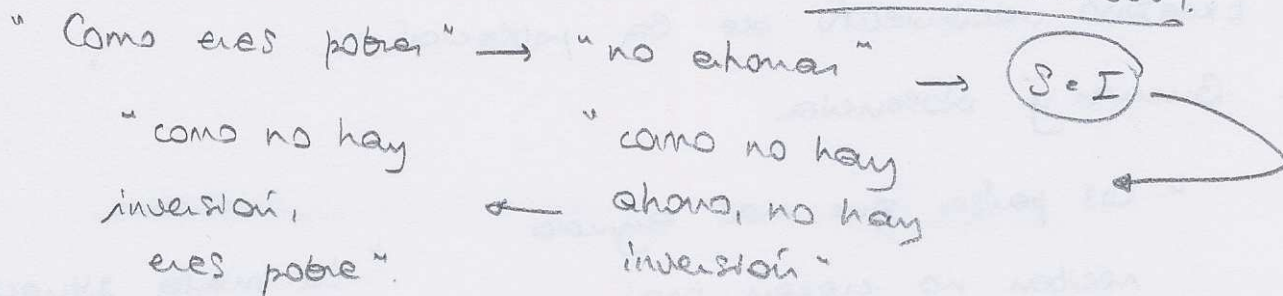 " Como eres pobre" → "no ahorras" → S = I
"como no hay
inversión,
eres pobre".
"como no hay
ahorro, no hay
inversión"